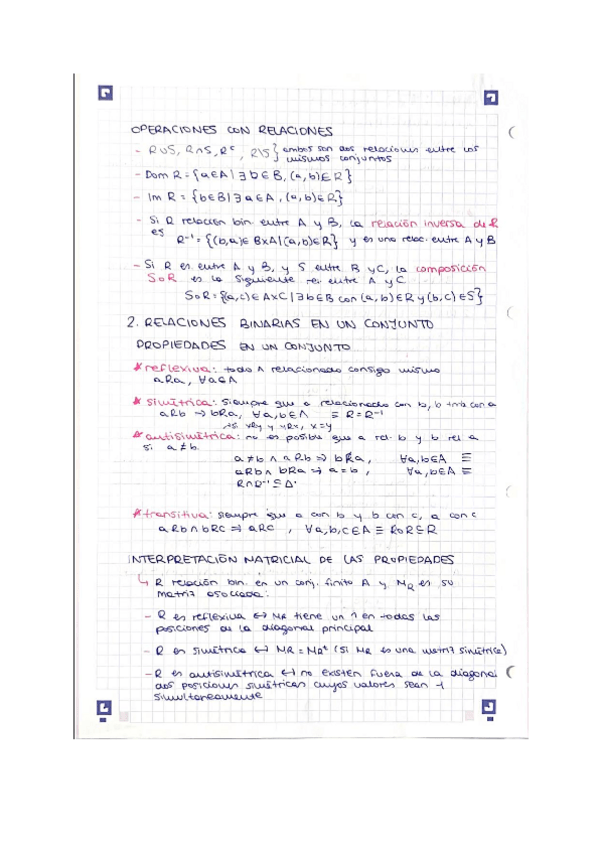 OPERACIONES CON RELACIONES
- R∪S, R∩S, Rᶜ, R\S } ambos son dos relaciones entre los
mismos conjuntos
- Dom R = {a∈A | ∃b∈B, (a,b)∈R}
- Im R = {b∈B | ∃a∈A, (a,b)∈R}
- Si R relación bin. entre A y B, la relación inversa de R
es R⁻¹ = {(b,a)∈BxA | (a,b)∈R} y es una relac. entre A y B
- Si R es entre A y B, y S entre B y C, la composición
S∘R es la siguiente rel. entre A y C
S∘R = {(a,c)∈AxC | ∃b∈B con (a,b)∈R y (b,c)∈S}
2. RELACIONES BINARIAS EN UN CONJUNTO
PROPIEDADES EN UN CONJUNTO
* reflexiva: todo A relacionado consigo mismo
aRa, ∀a∈A
* simétrica: siempre que a relacionado con b, b tmb con a
aRb → bRa, ∀a,b∈A ≡ R=R⁻¹
xRy y yRx, x=y
* antisimétrica: no es posible que a rel. b y b rel a
si a≠b
a≠b ∧ aRb ⇒ bRa, ∀a,b∈A ≡
aRb ∧ bRa ⇒ a=b, ∀a,b∈A ≡
R∩R⁻¹ ⊆ Δ
* transitiva: siempre que a con b y b con c, a con c
aRb ∧ bRc ⇒ aRc, ∀a,b,c∈A ≡ R∘R⊆R
INTERPRETACIÓN MATRICIAL DE LAS PROPIEDADES
↳ R relación bin. en un conj. finito A y M_R es su
matriz asociada:
- R es reflexiva ↔ M_R tiene un 1 en todas las
posiciones de la diagonal principal
- R es simétrica ↔ M_R = M_Rᵗ (si M_R es una matriz simétrica)
- R es antisimétrica ↔ no existen fuera de la diagonal
dos posiciones simétricas cuyos valores sean 1
simultáneamente